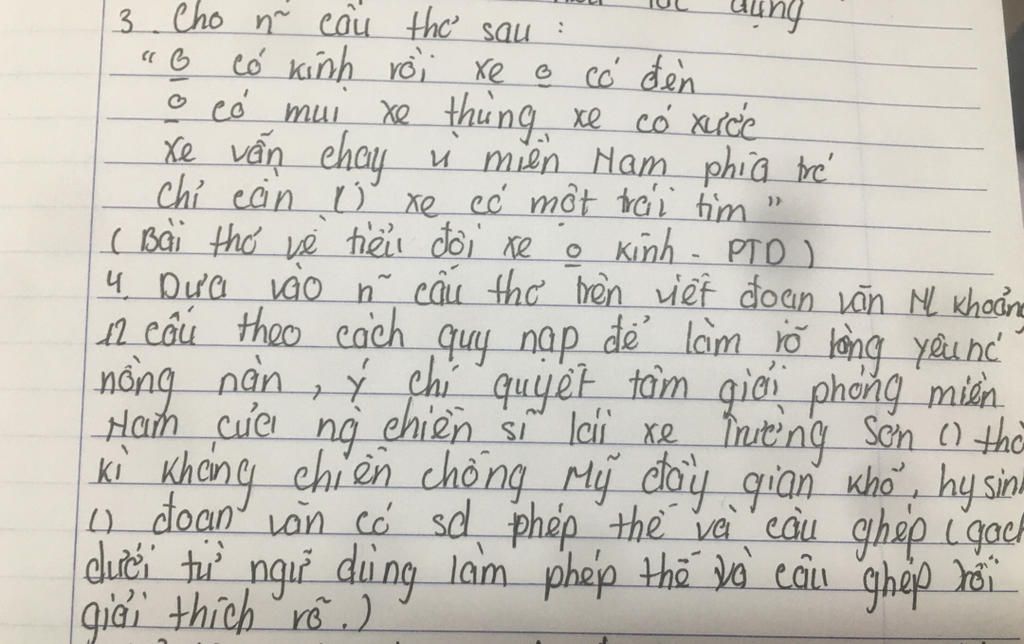 dụng
3. Cho n~ câu thơ sau :
"O có kính rồi xe o có đèn
o có mui xe thùng xe có xước
xe vẫn chạy vì miền Nam phía trc
Chỉ cần () xe có một trái tim"
(Bài thơ về tiểu đội xe o kính - PTD)
4. Dựa vào n~ câu thơ trên viết đoạn văn NL khoảng
12 câu theo cách quy nạp để làm rõ lòng yêu nc
nồng nàn, ý chí quyết tâm giải phóng miền
Nam của ng chiến sĩ lái xe Trường Sơn () thờ
kì kháng chiến chống Mỹ đầy gian khổ, hy sinh
() đoạn văn có sd phép thế và câu ghép (gạch
dưới từ ngữ dùng làm phép thế và câu ghép rồi
giải thích rõ.)